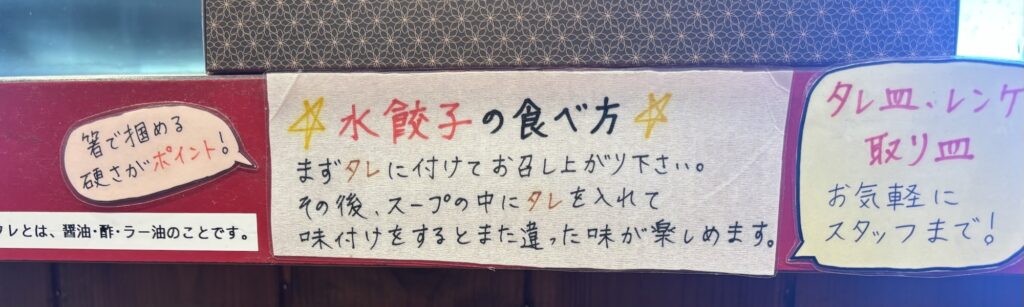 箸で掴める
硬さがポイント!
タレとは、醤油・酢・ラー油のことです。
☆水餃子の食べ方☆
まずタレに付けてお召し上がり下さい。
その後、スープの中にタレを入れて
味付けをするとまた違った味が楽しめます。
タレ皿、レンゲ
取り皿
お気軽に
スタッフまで!